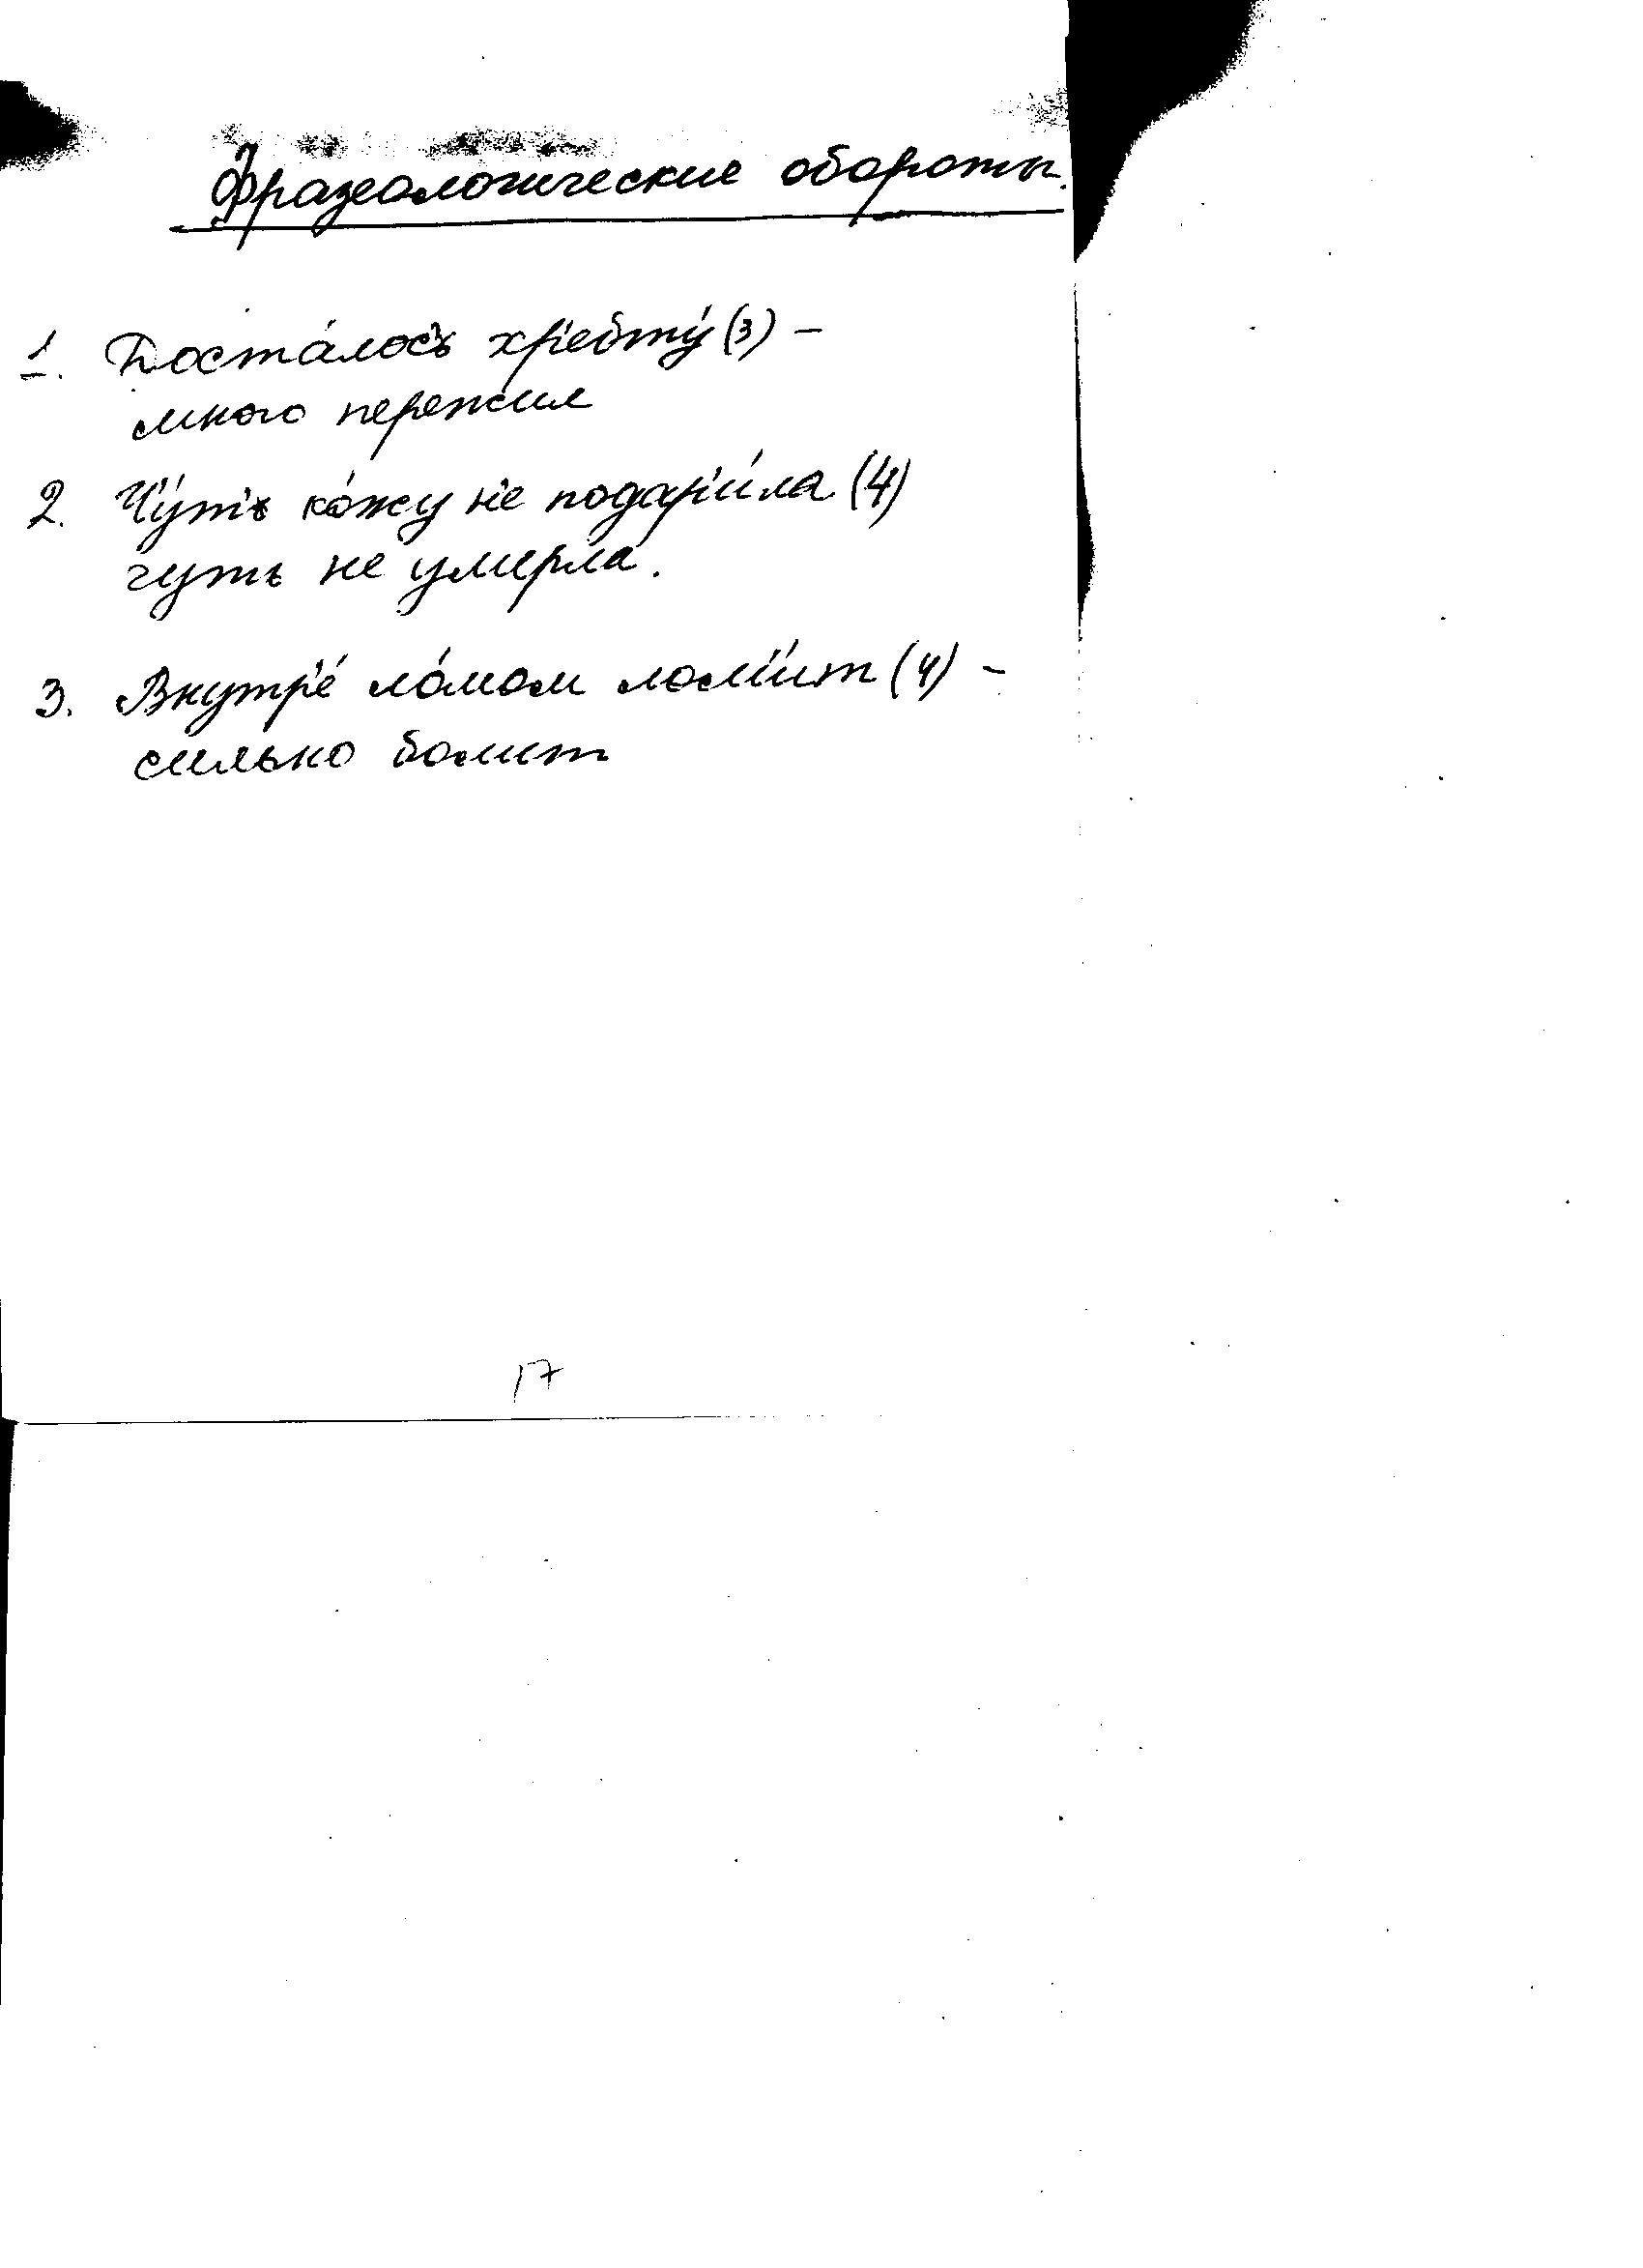 Фразеологические обороты.
1. Доста́лос'ъ хр'ебту́ (3) –
много пережил
2. Ч'у́т'ь ко́жу н'е подар'и́ла (4)
чуть не умерла.
3. Внутр'е́ ло́мом лом'и́т (4) –
сильно болит
17